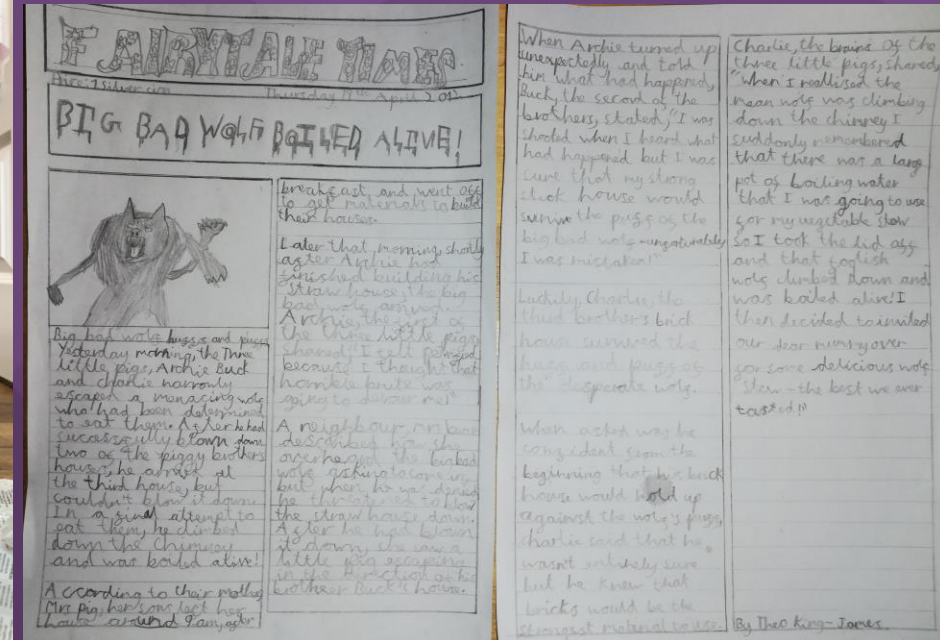 FAIRYTALE TIMES
Price: 1 silver coin
Thursday 19th April 2012
BIG BAD WOLF BOILED ALIVE!
Big bad wolf huffs and puffs
Yesterday morning, the Three
little pigs, Archie Buck
and charlie narrowly
escaped a menacing wolf
who had been determined
to eat them. After he had
successfully blown down
two of the piggy brothers
houses, he arrived at
the third house, but
couldn't blow it down.
In a final attempt to
eat them, he climbed
down the Chimney
and was boiled alive!
According to their mother
Mrs pig, her sons left her
house around 9am, after
breakfast and went off
to get materials to build
their houses.
Later that morning, shortly
after Archie had
finished building his
straw house, the big
bad wolf arrived.
Archie, the first of
the three little pigs
shared, "I felt petrified
because I thought that
horrible brute was
going to devour me!"
A neighbour, mrs
described how she
overheard the big bad
wolf asking to come in
but when he was denied
he threatened to blow
the straw house down.
After he had blown
it down, she saw a
little pig escaping
in the direction of his
brother Buck's house.
When Archie turned up
unexpectedly and told
him what had happened,
Buck, the second of the
brothers, stated, "I was
shocked when I heard what
had happened but I was
sure that my strong
stick house would
survive the puffs of the
big bad wolf - unfortunately
I was mistaken!"
Luckily, Charlie, the
third brother's brick
house survived the
huffs and puffs of
the desperate wolf.
When asked was he
confident from the
beginning that his brick
house would hold up
against the wolf's puffs,
charlie said that he
wasn't entirely sure
but he knew that
bricks would be the
strongest material to use.
Charlie, the brains of the
three little pigs, shared,
"When I reallised the
mean wolf was climbing
down the chimney I
suddonly remembered
that there was a large
pot of boiling water
that I was going to use
for my vegetable stew
so I took the lid off
and that foolish
wolf climbed down and
was boiled alive! I
then decided to invited
our dear mummy over
for some delicious wolf
stew - the best we ever
tasted!"
By Theo King-James